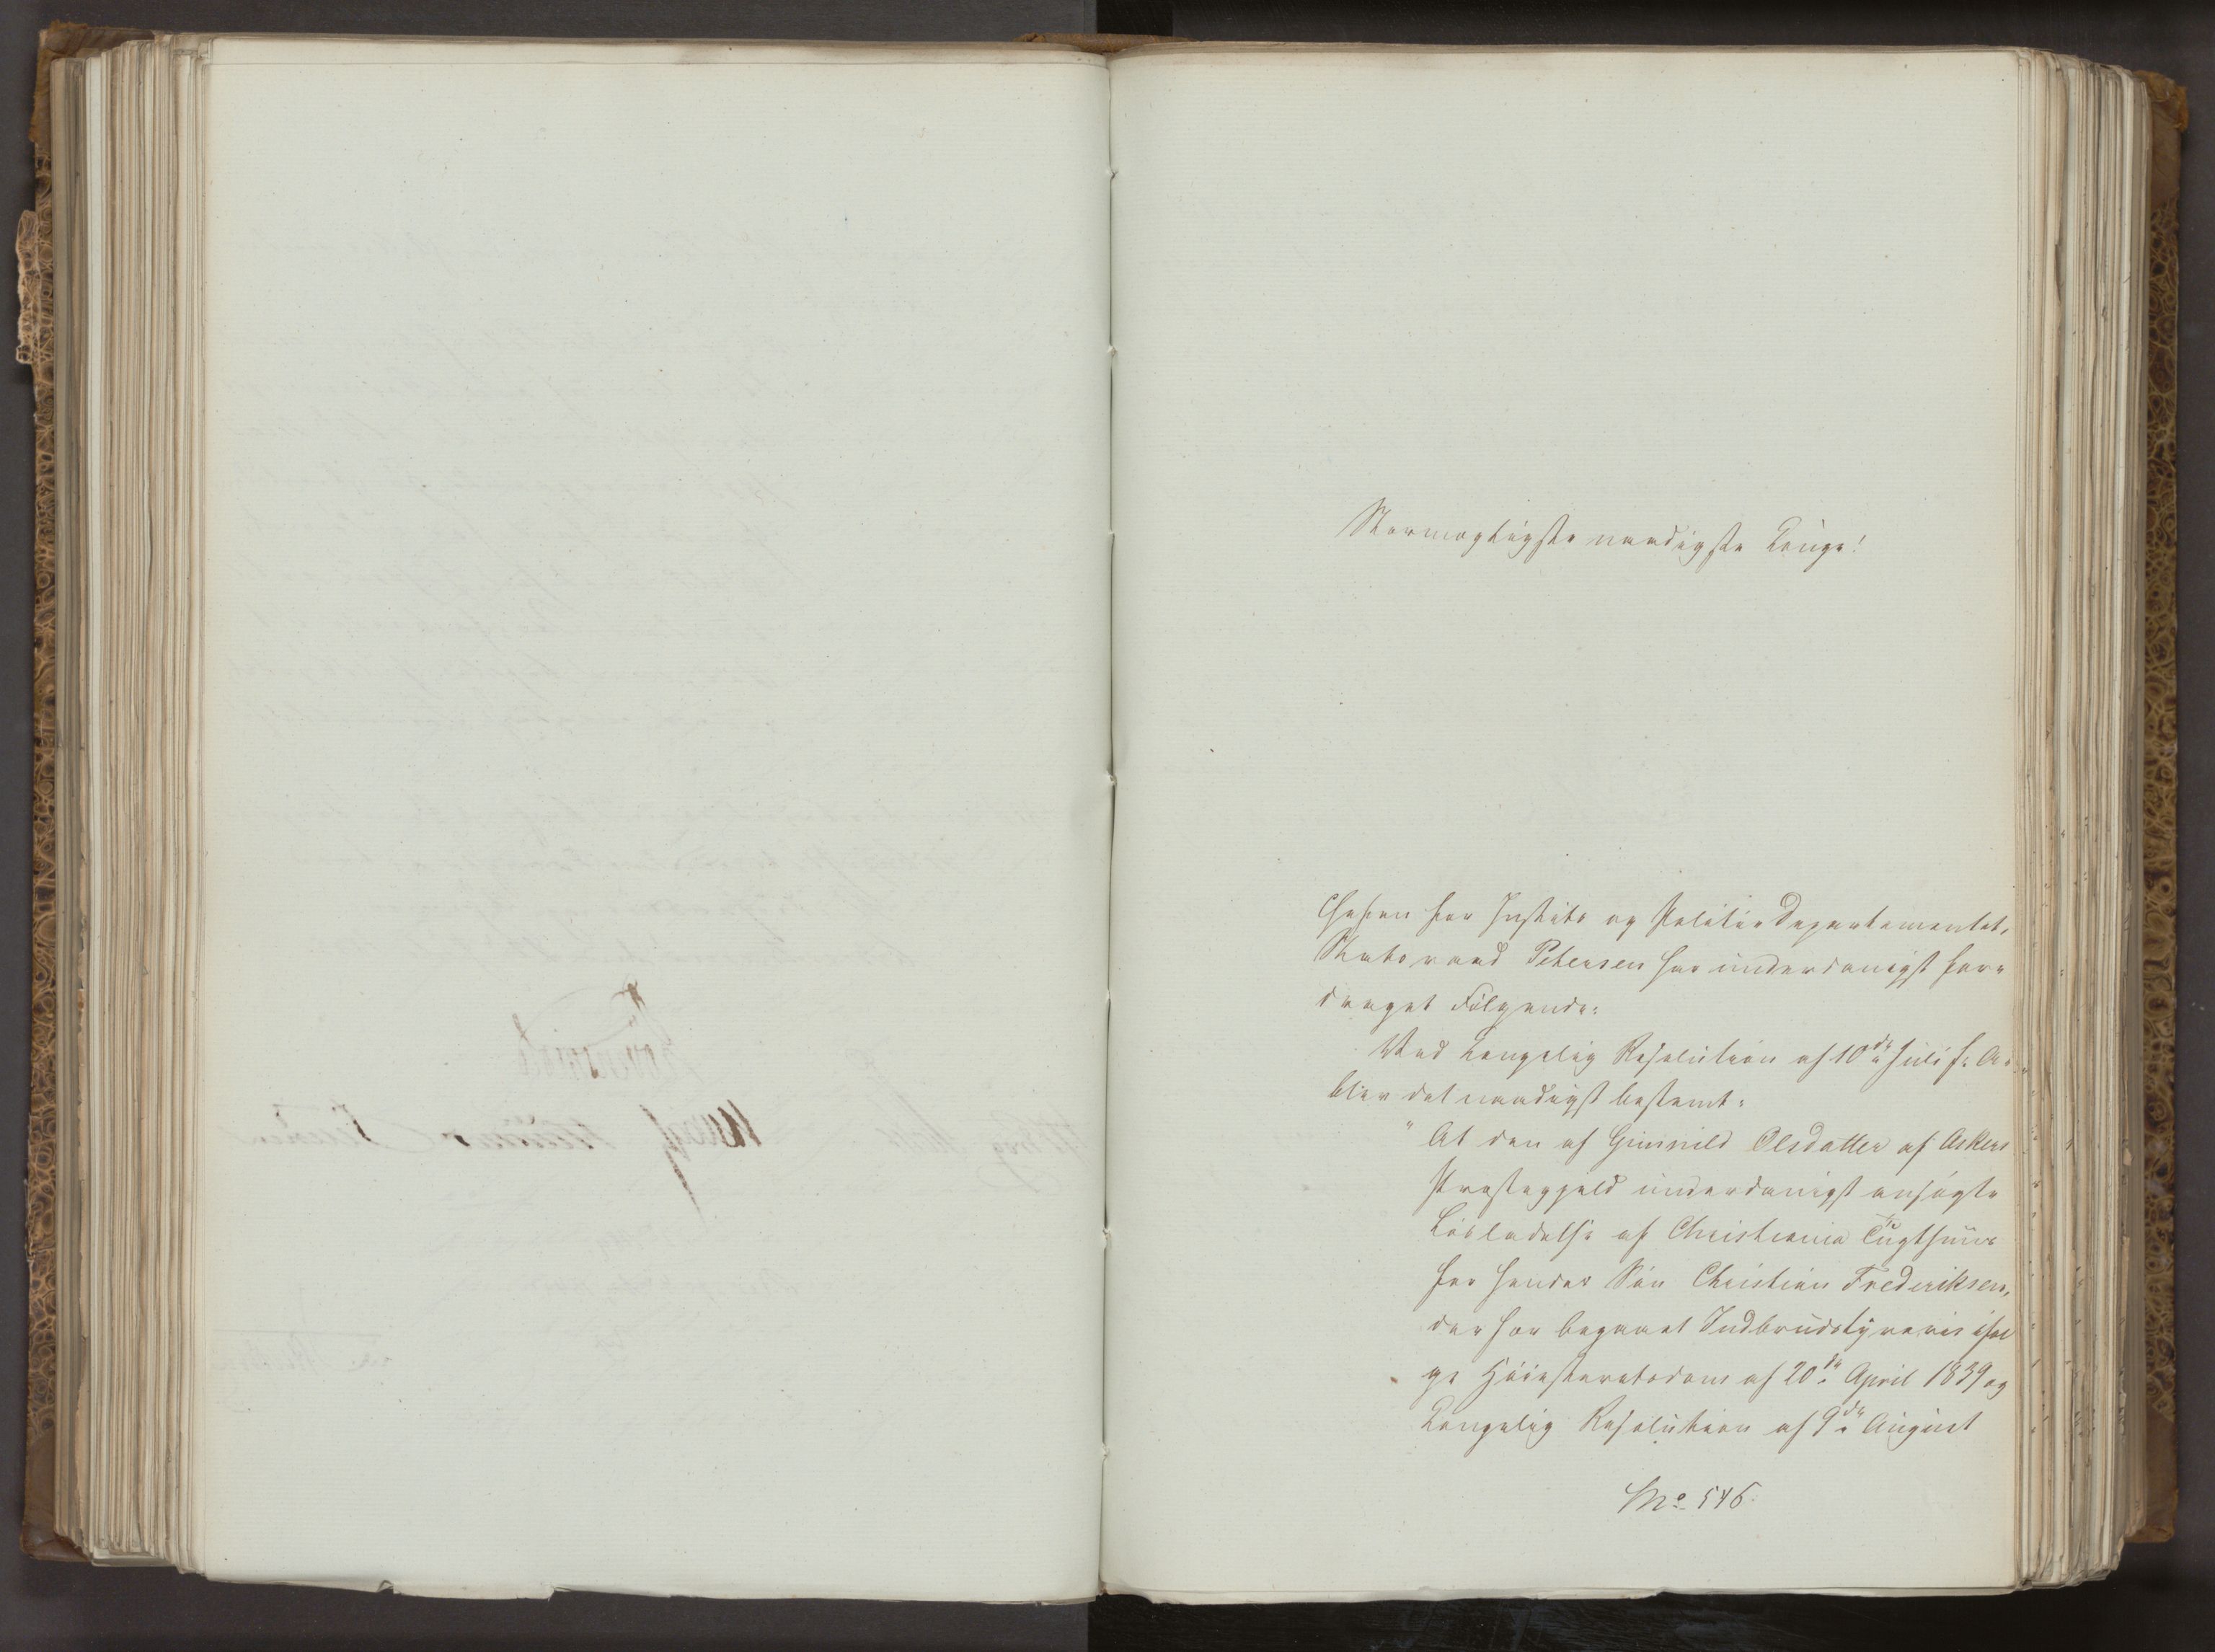 Stormægtigste naadigste Konge!
Chefen for Justits og Politie Departementet,
Statsraad Petersen har underdanigst fore-
draget Følgende:
Ved kongelig Resolution af 10de Juli f. A.
blev det naadigst bestemt:
"At den af Gunnild Olsdatter af Askers
Præstegjeld underdanigst ansøgte
Løsladelse af Christiania Tugthuus
for hendes Søn Christian Frederiksen,
der for begaaet Indbrudstyverie iføl
ge Høiesteretsdom af 20de April 1839 og
Kongelig Resolution af 9de August
No 546.